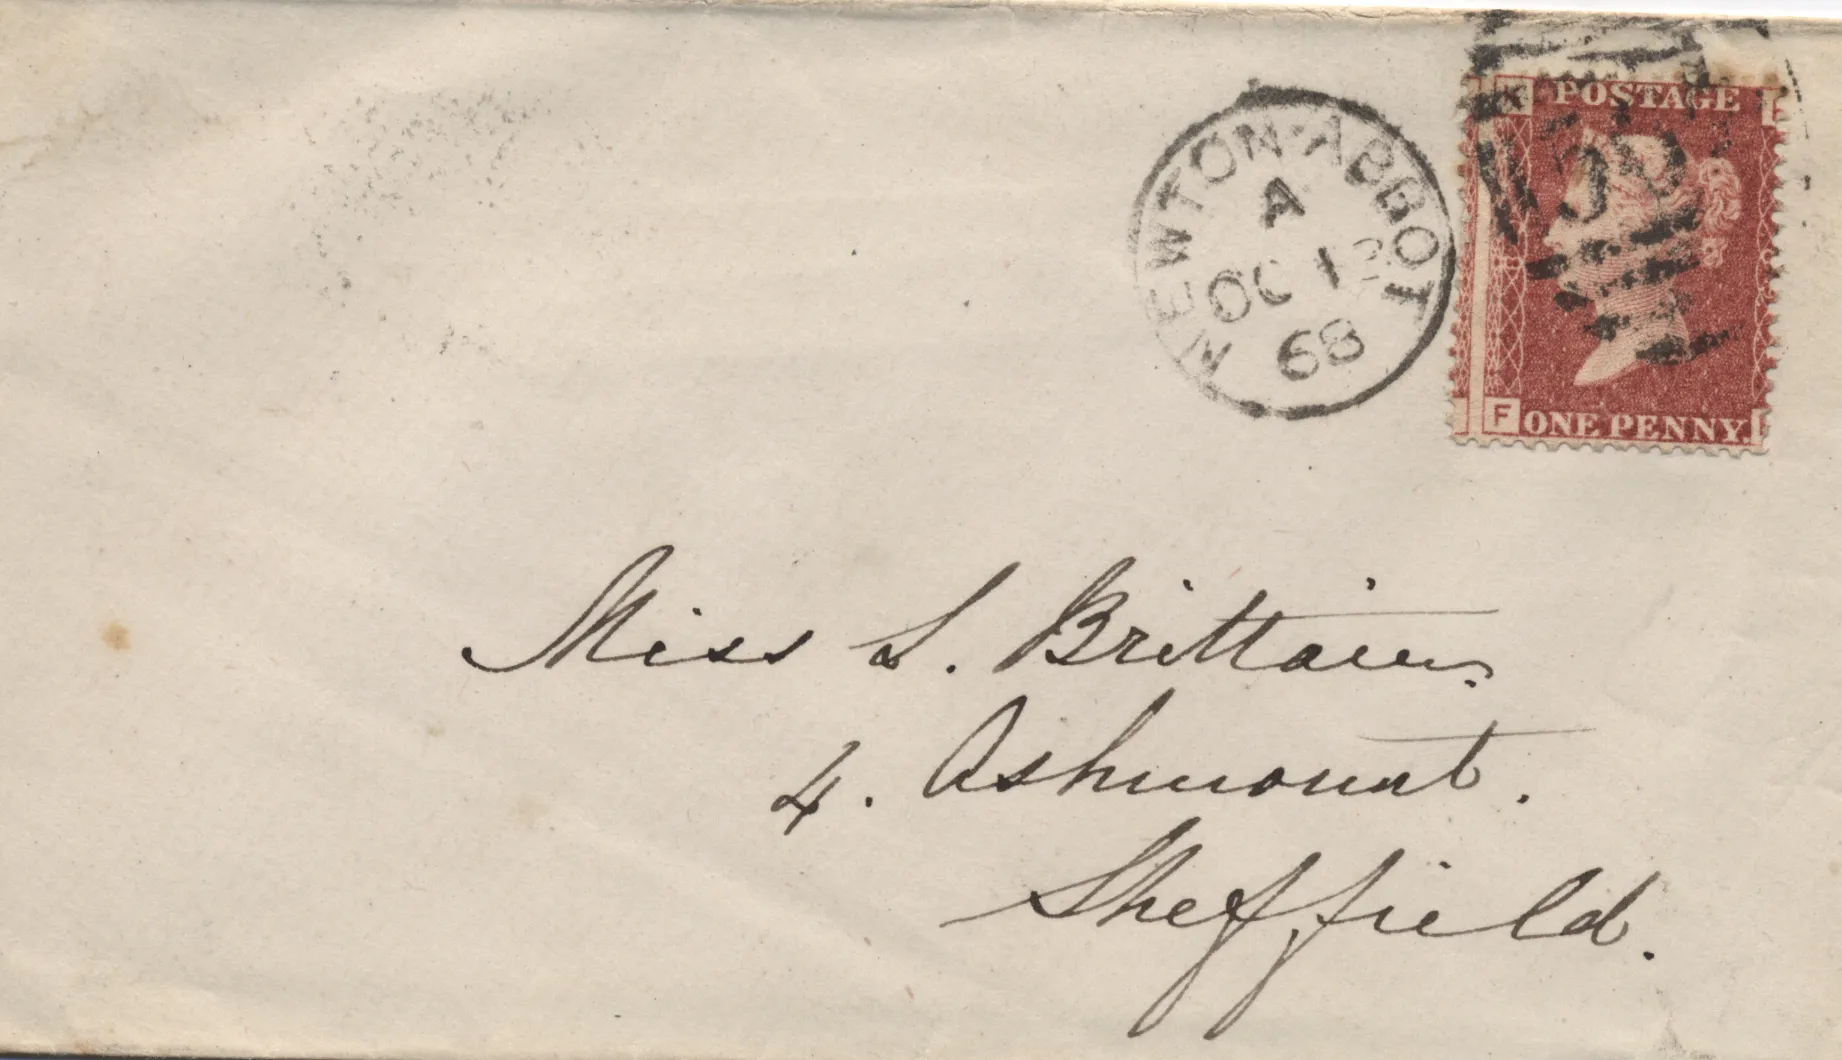 NEWTON-ABBOT
A
OC 13
68
K POSTAGE
F ONE PENNY
Miss S. Brittain.
4. Ashmount.
Sheffield.